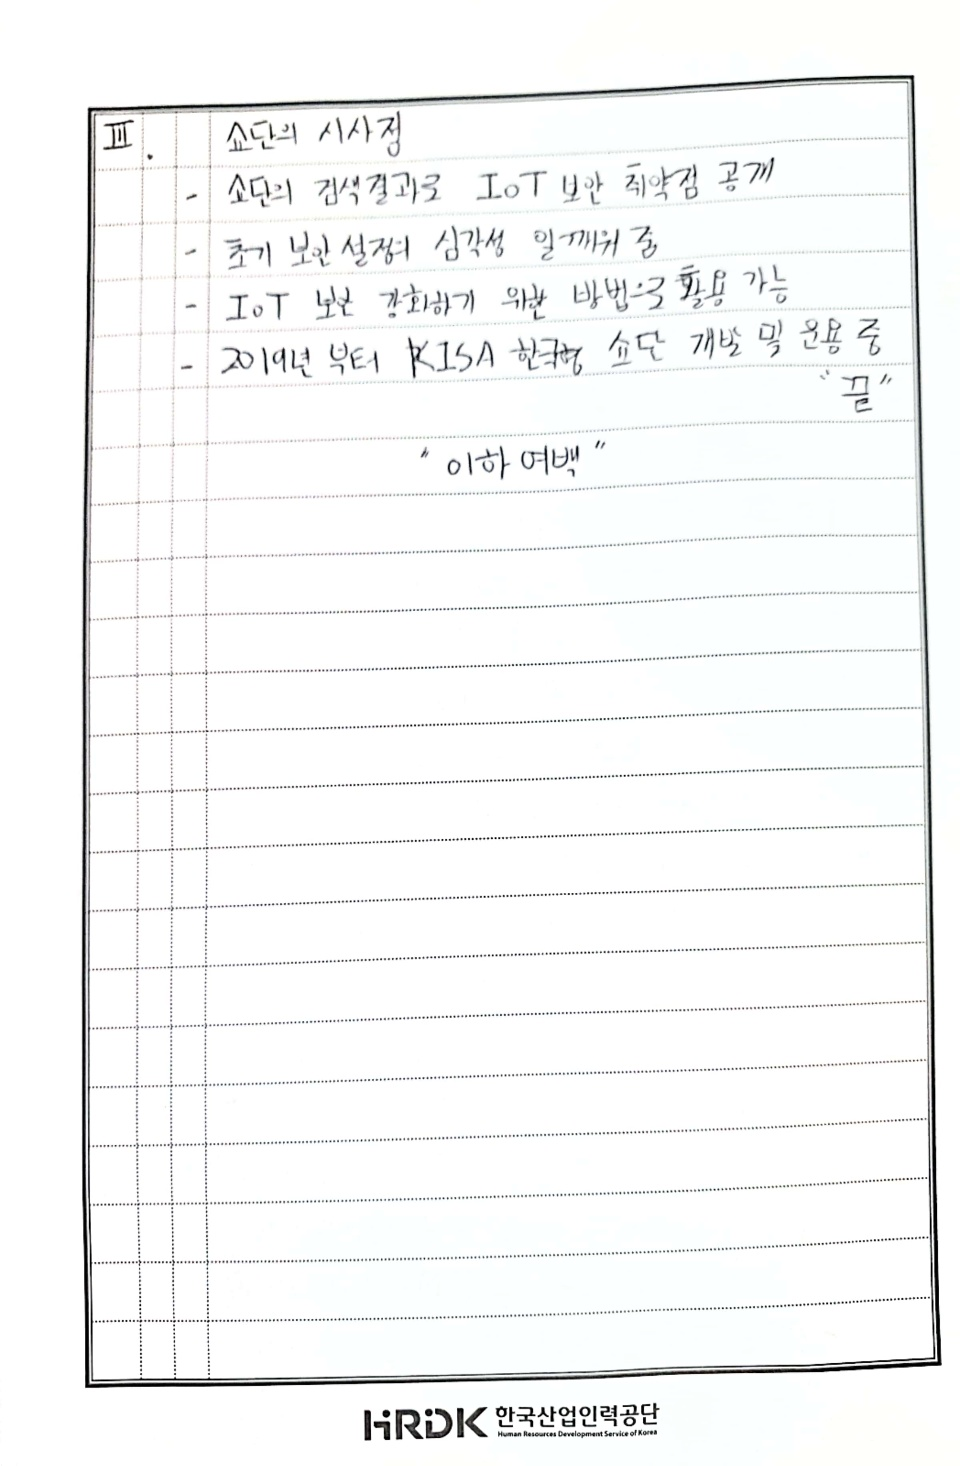 Ⅲ. 쇼단의 시사점
- 쇼단의 검색결과로 IoT 보안 취약점 공개
- 초기 보안설정의 심각성 일깨워 줌
- IoT 보안 강화하기 위한 방법으로 활용 가능
- 2019년 부터 KISA 한국형 쇼단 개발 및 운용 중
"끝"
"이하 여백"
HRDK 한국산업인력공단
Human Resources Development Service of Korea